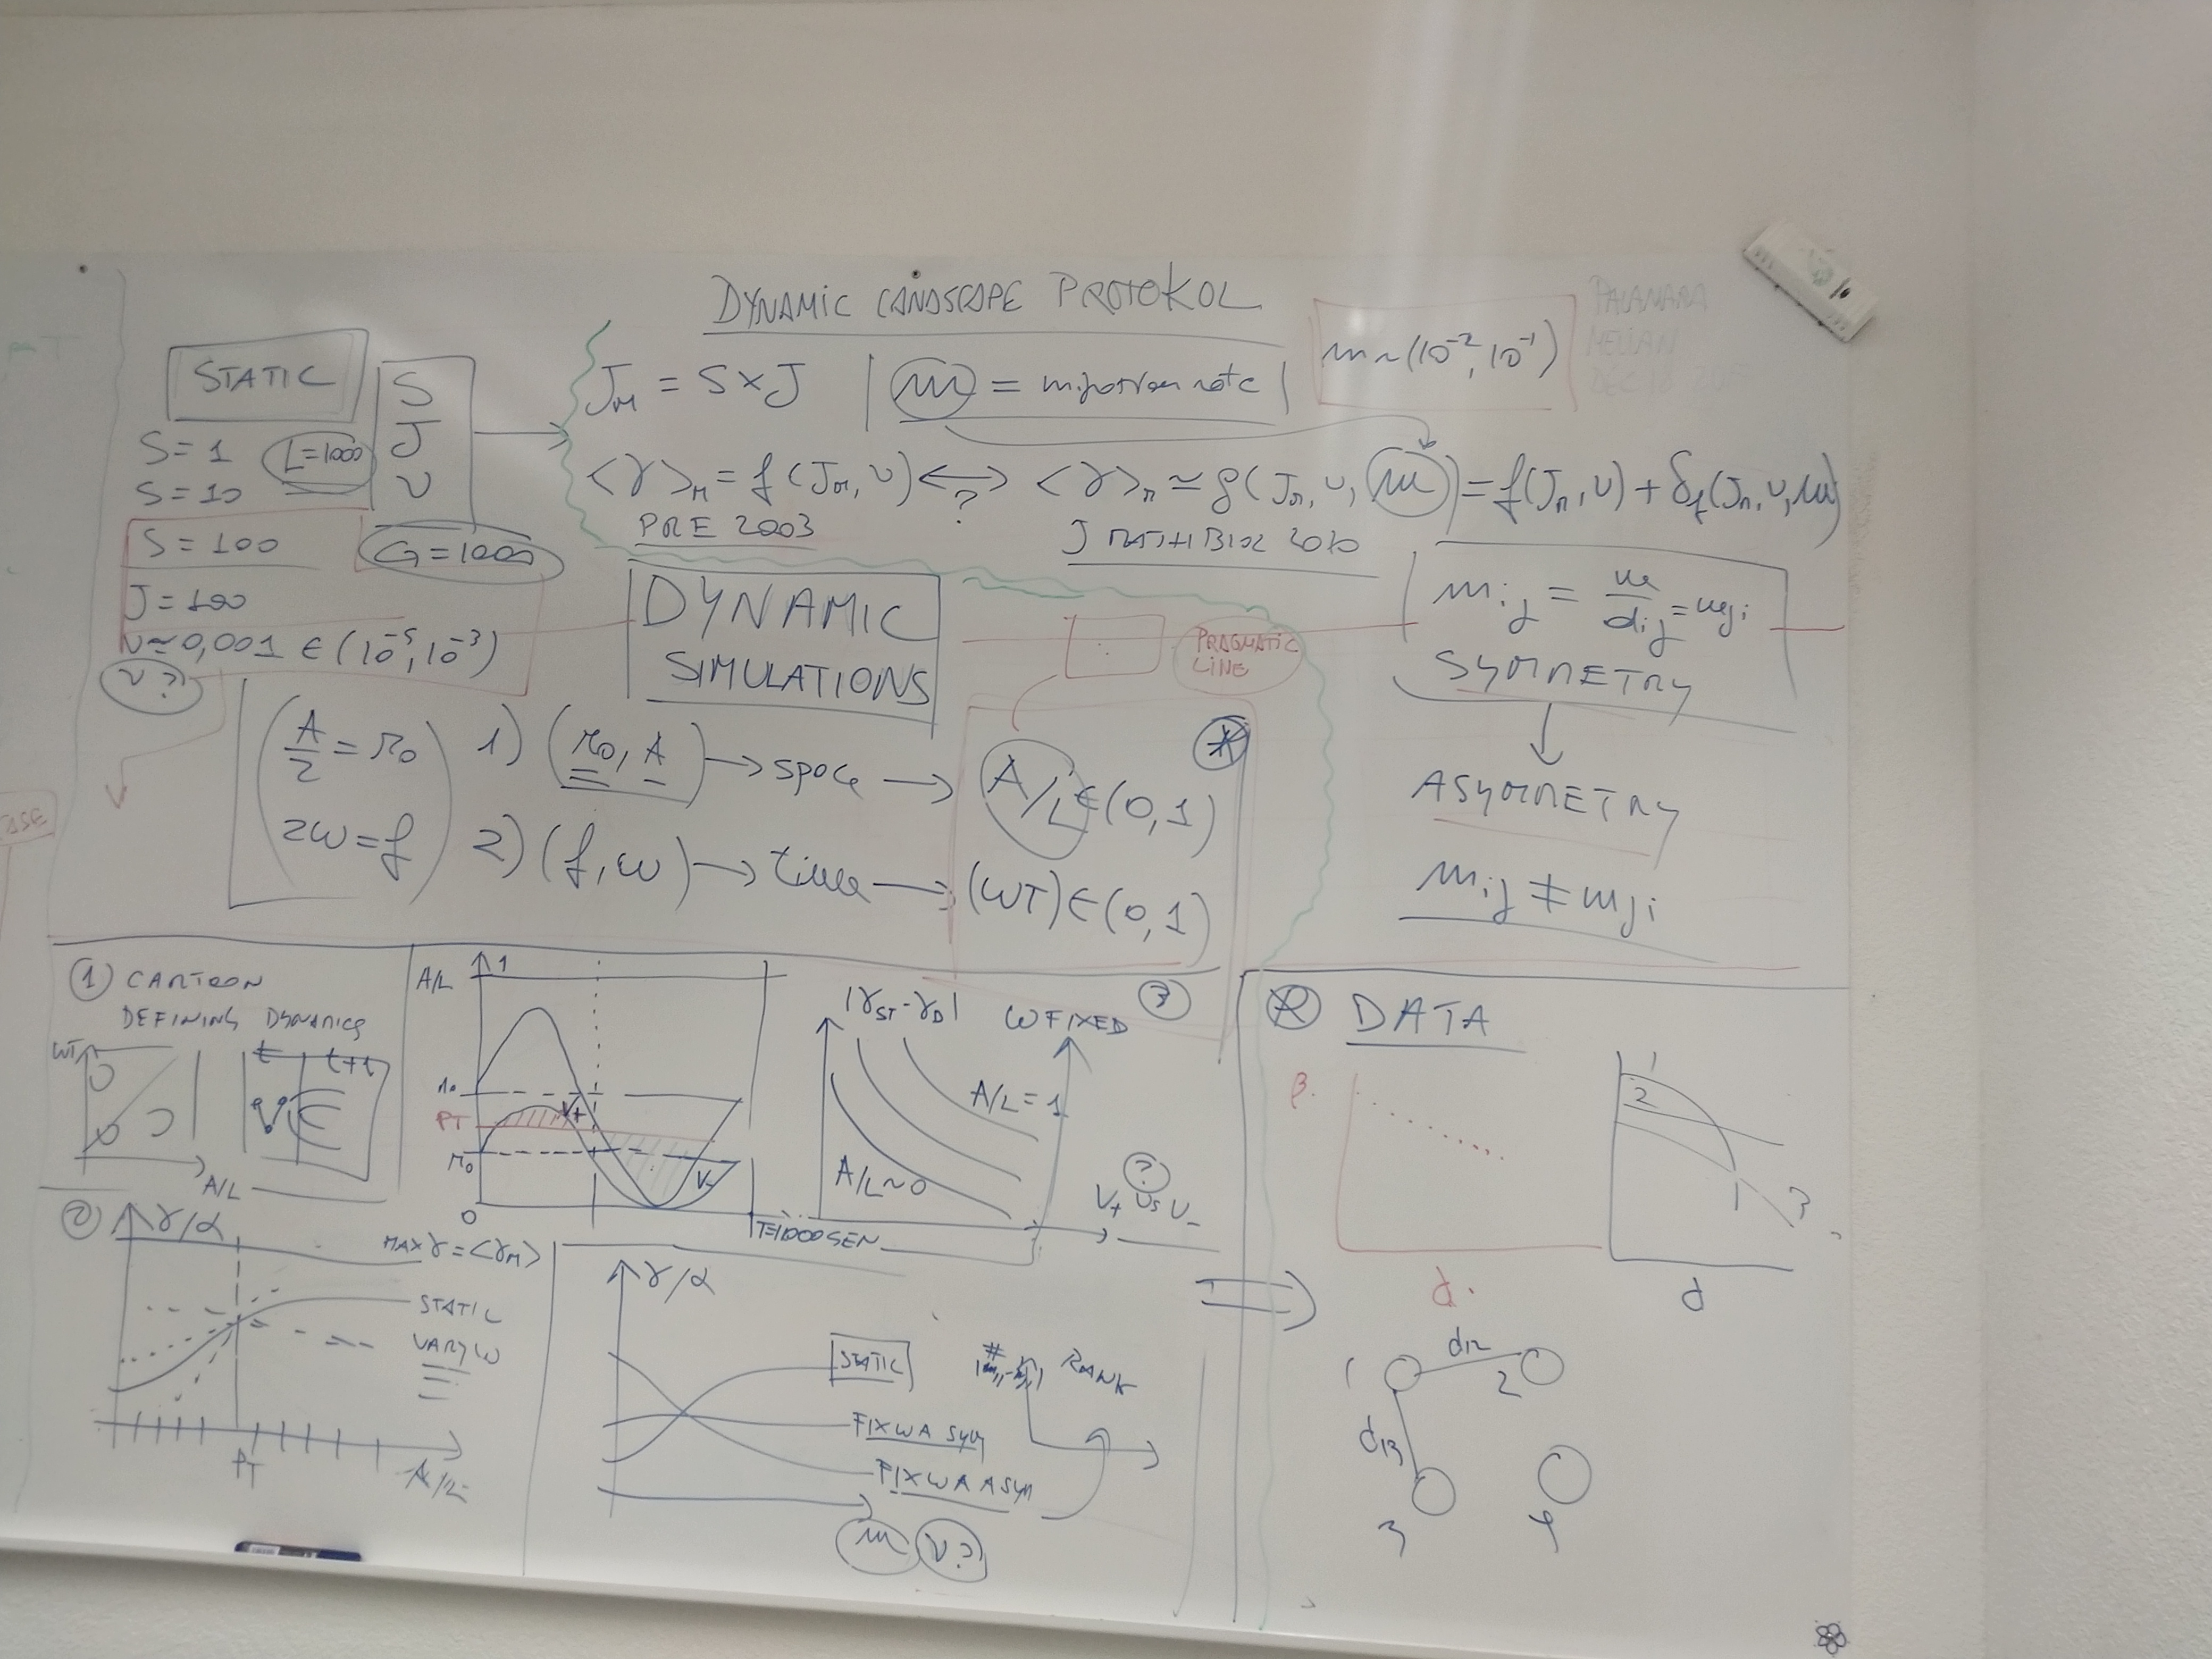 DYNAMIC LANDSCAPE PROTOKOL
STATIC
S
J
ν
S = 1
L=1000
S = 10
S = 100
G = 1000
J = 100
ν ≃ 0,001 ∈ (10⁻⁵, 10⁻³)
ν?
J_M = S × J
m = migration rate
m ~ (10⁻², 10⁻¹)
<γ>_M = f(J_M, ν) <-> ? <γ>_M ≃ g(J_M, ν, m) = f(J_M, ν) + δ_f(J_M, ν, m)
PRE 2003
J MATH BIOL 2010
DYNAMIC
SIMULATIONS
PRAGMATIC
LINE
SYMMETRY
ASYMMETRY
m_ij ≠ m_ji
A/2 = r₀
2ω = f
1) (r₀, A) → space → A/L ∈ (0, 1)
2) (f, ω) → time → (ωT) ∈ (0, 1)
1 CARTOON
DEFINING DYNAMICS
ωT
t
t+1
A/L
A/L
1
r₀
PT
r₀
0
V+
V-
3
|γ_ST - γ_D|
ω FIXED
A/L = 1
A/L ~ 0
?
V+ vs V-
2
γ/α
MAX γ = <γ_M>
STATIC
VARY ω
PT
A/L
γ/α
STATIC
FIX ω A SYM
FIX ω A ASYM
m
ν?
#
RANK
DATA
β
d
1
2
1
3
d
1
d12
2
d13
3
4